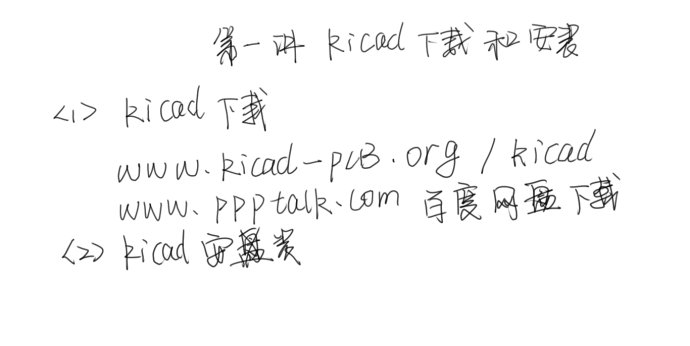 第一讲 kicad 下载和安装
<1> kicad 下载
www.kicad-pcB.org / kicad
www.ppptalk.com 百度网盘下载
<2> kicad 安装